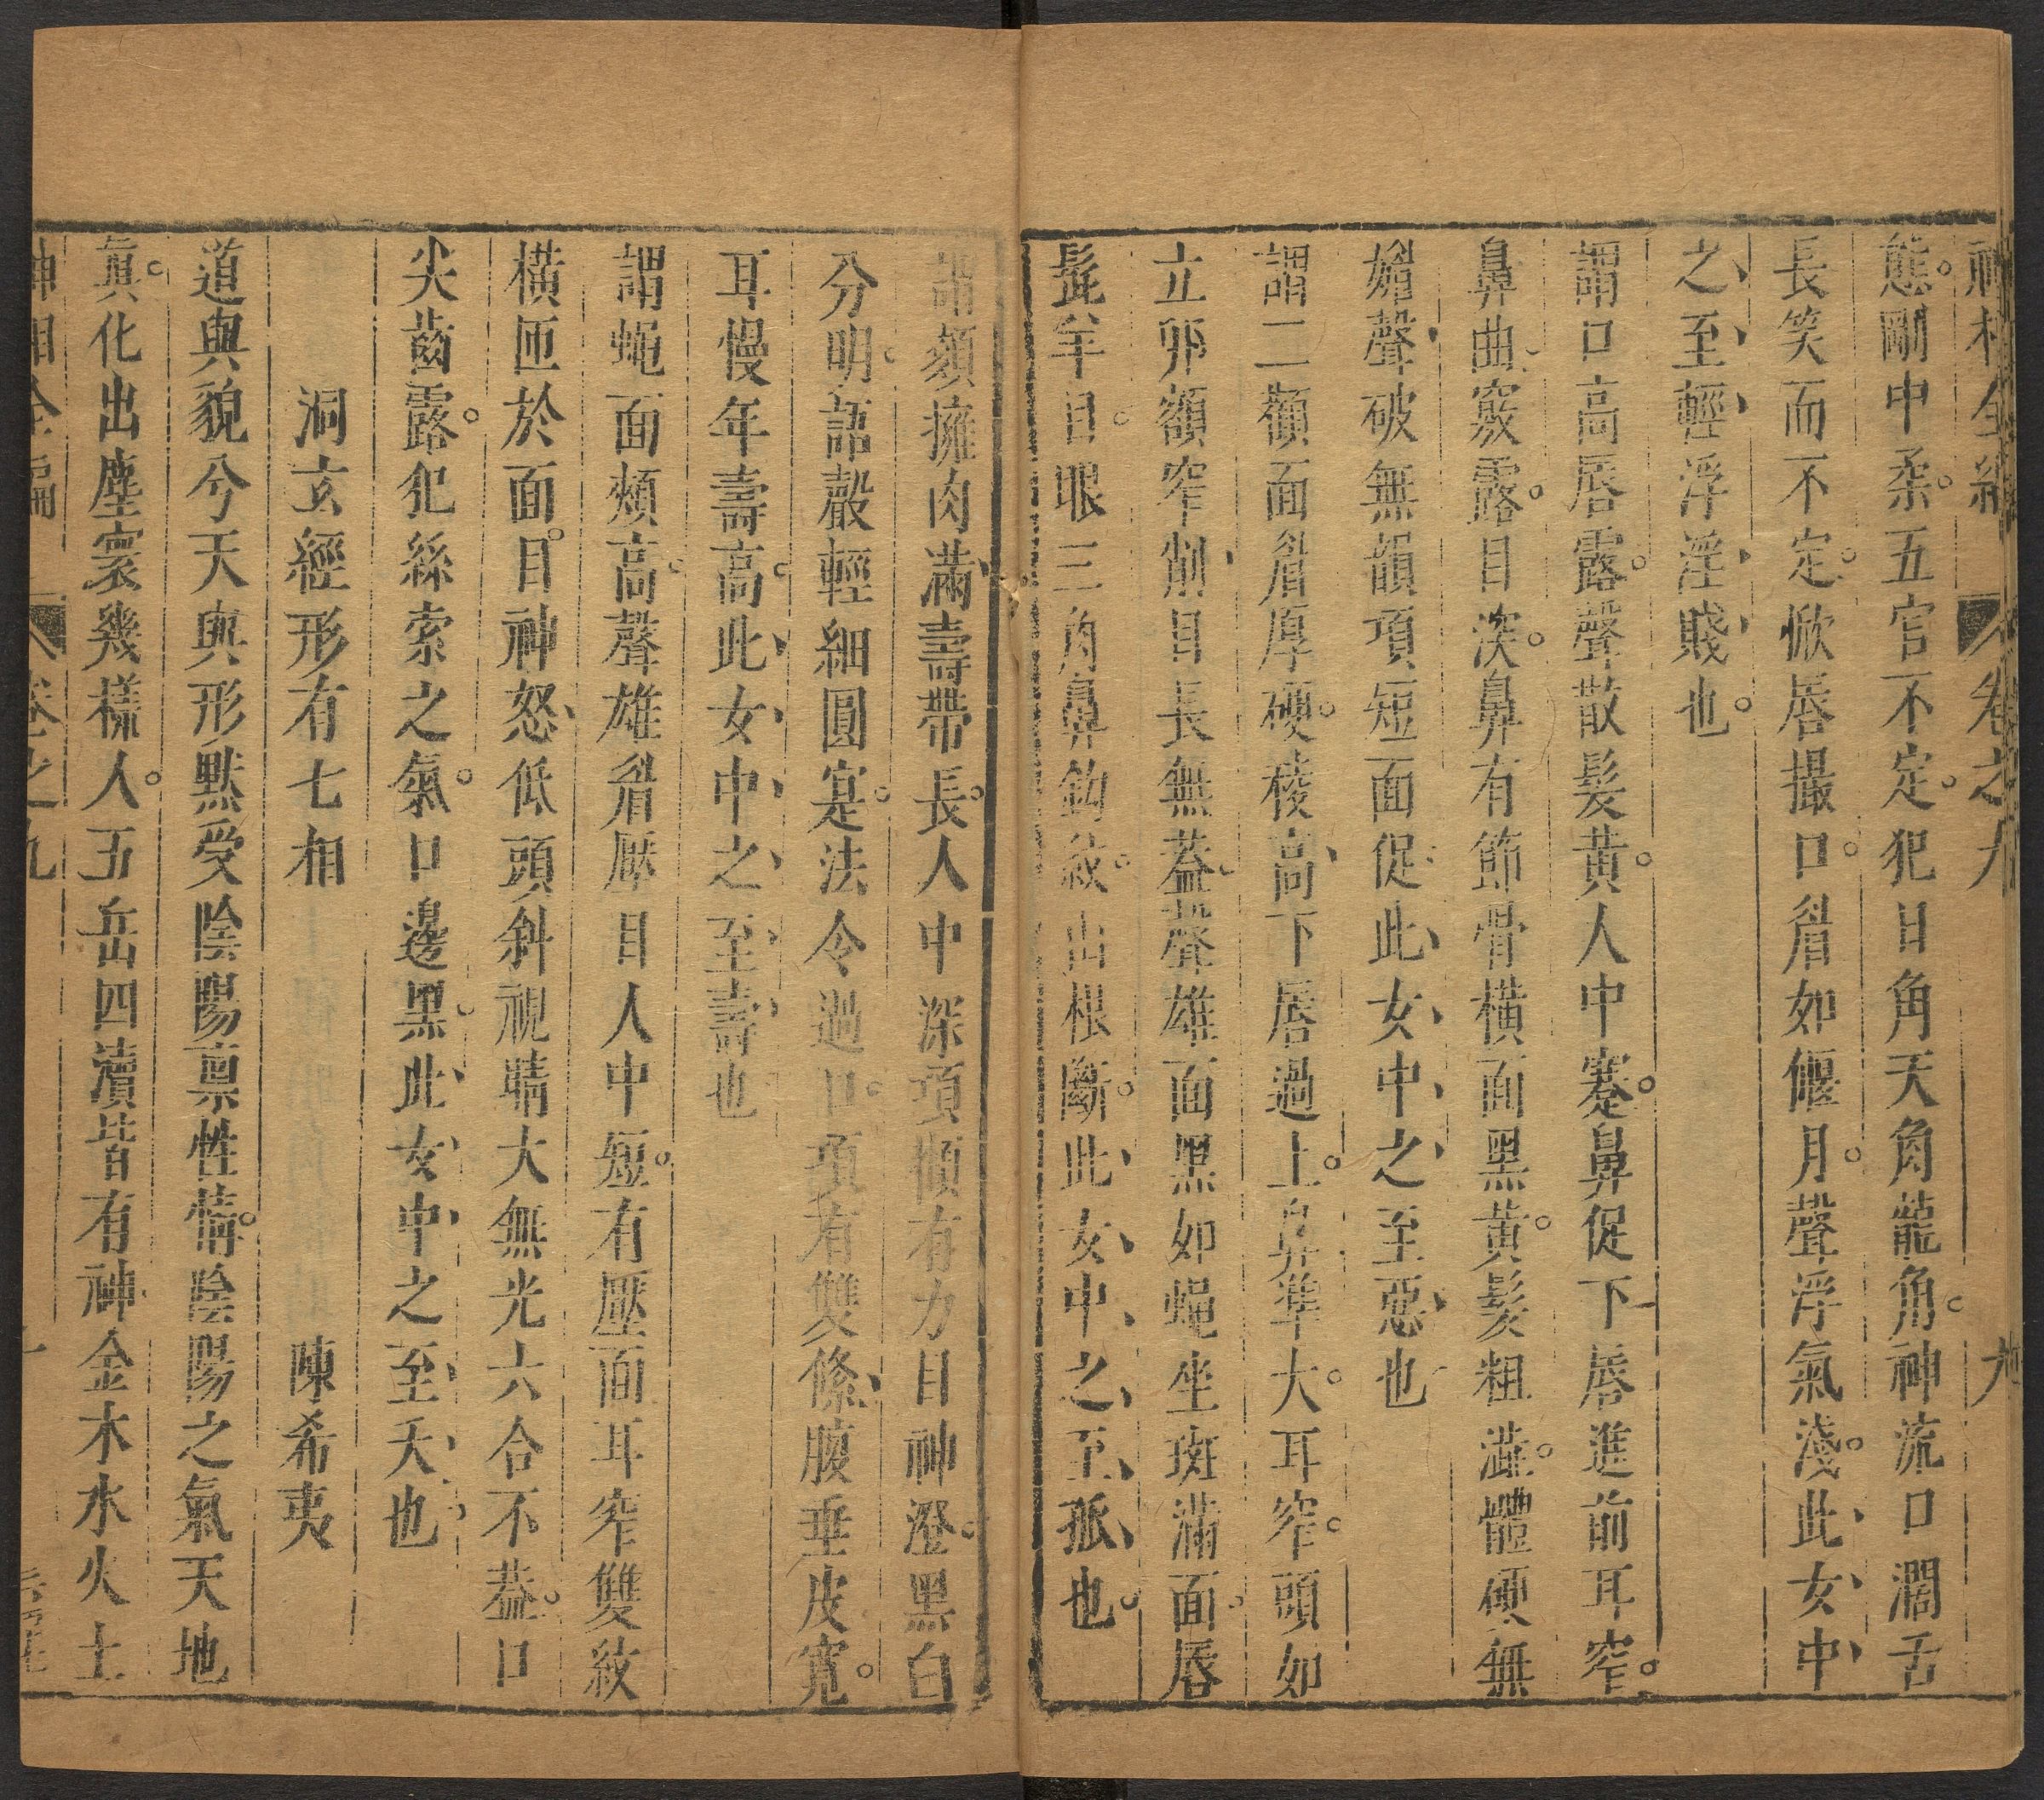 神相全編 卷之九 九
態剛中柔五官不定犯日角天角龍角神流口濶舌
長笑而不定掀唇撮口眉如偃月聲浮氣淺此女中
之至輕浮淫賤也
謂口高唇露聲散髮黃人中蹇鼻促下唇進前耳窄
鼻曲竅露目深鼻有節骨橫面黑黃髮粗澁體硬無
媚聲破無韻項短面促此女中之至惡也
謂二顴面眉厚硬稜高下唇過上鼻準大耳窄頭如
立卵額窄削目長無蓋聲雄面黑如蝇坐斑滿面唇
髭羊目眼三角鼻鈎紋出根斷此女中之至孤也
謂頦擁肉滿壽帶長人中深項傾有力目神澄黑白
分明語聲輕細圓寔法令過口項有雙絛腹垂皮寛
耳慢年壽高此女中之至壽也
謂蝇面頰高聲雄眉壓目人中短有壓面耳窄雙紋
橫匝於面目神怒低頭斜視睛大無光六合不蓋口
尖齒露犯絲索之氣口邊黑此女中之至夭也
洞玄經形有七相 陳希夷
道與貌兮天與形黙受陰陽稟性情陰陽之氣天地
眞化出塵寰幾樣人五岳四瀆皆有神金木水火土
神相全編 卷之九 十